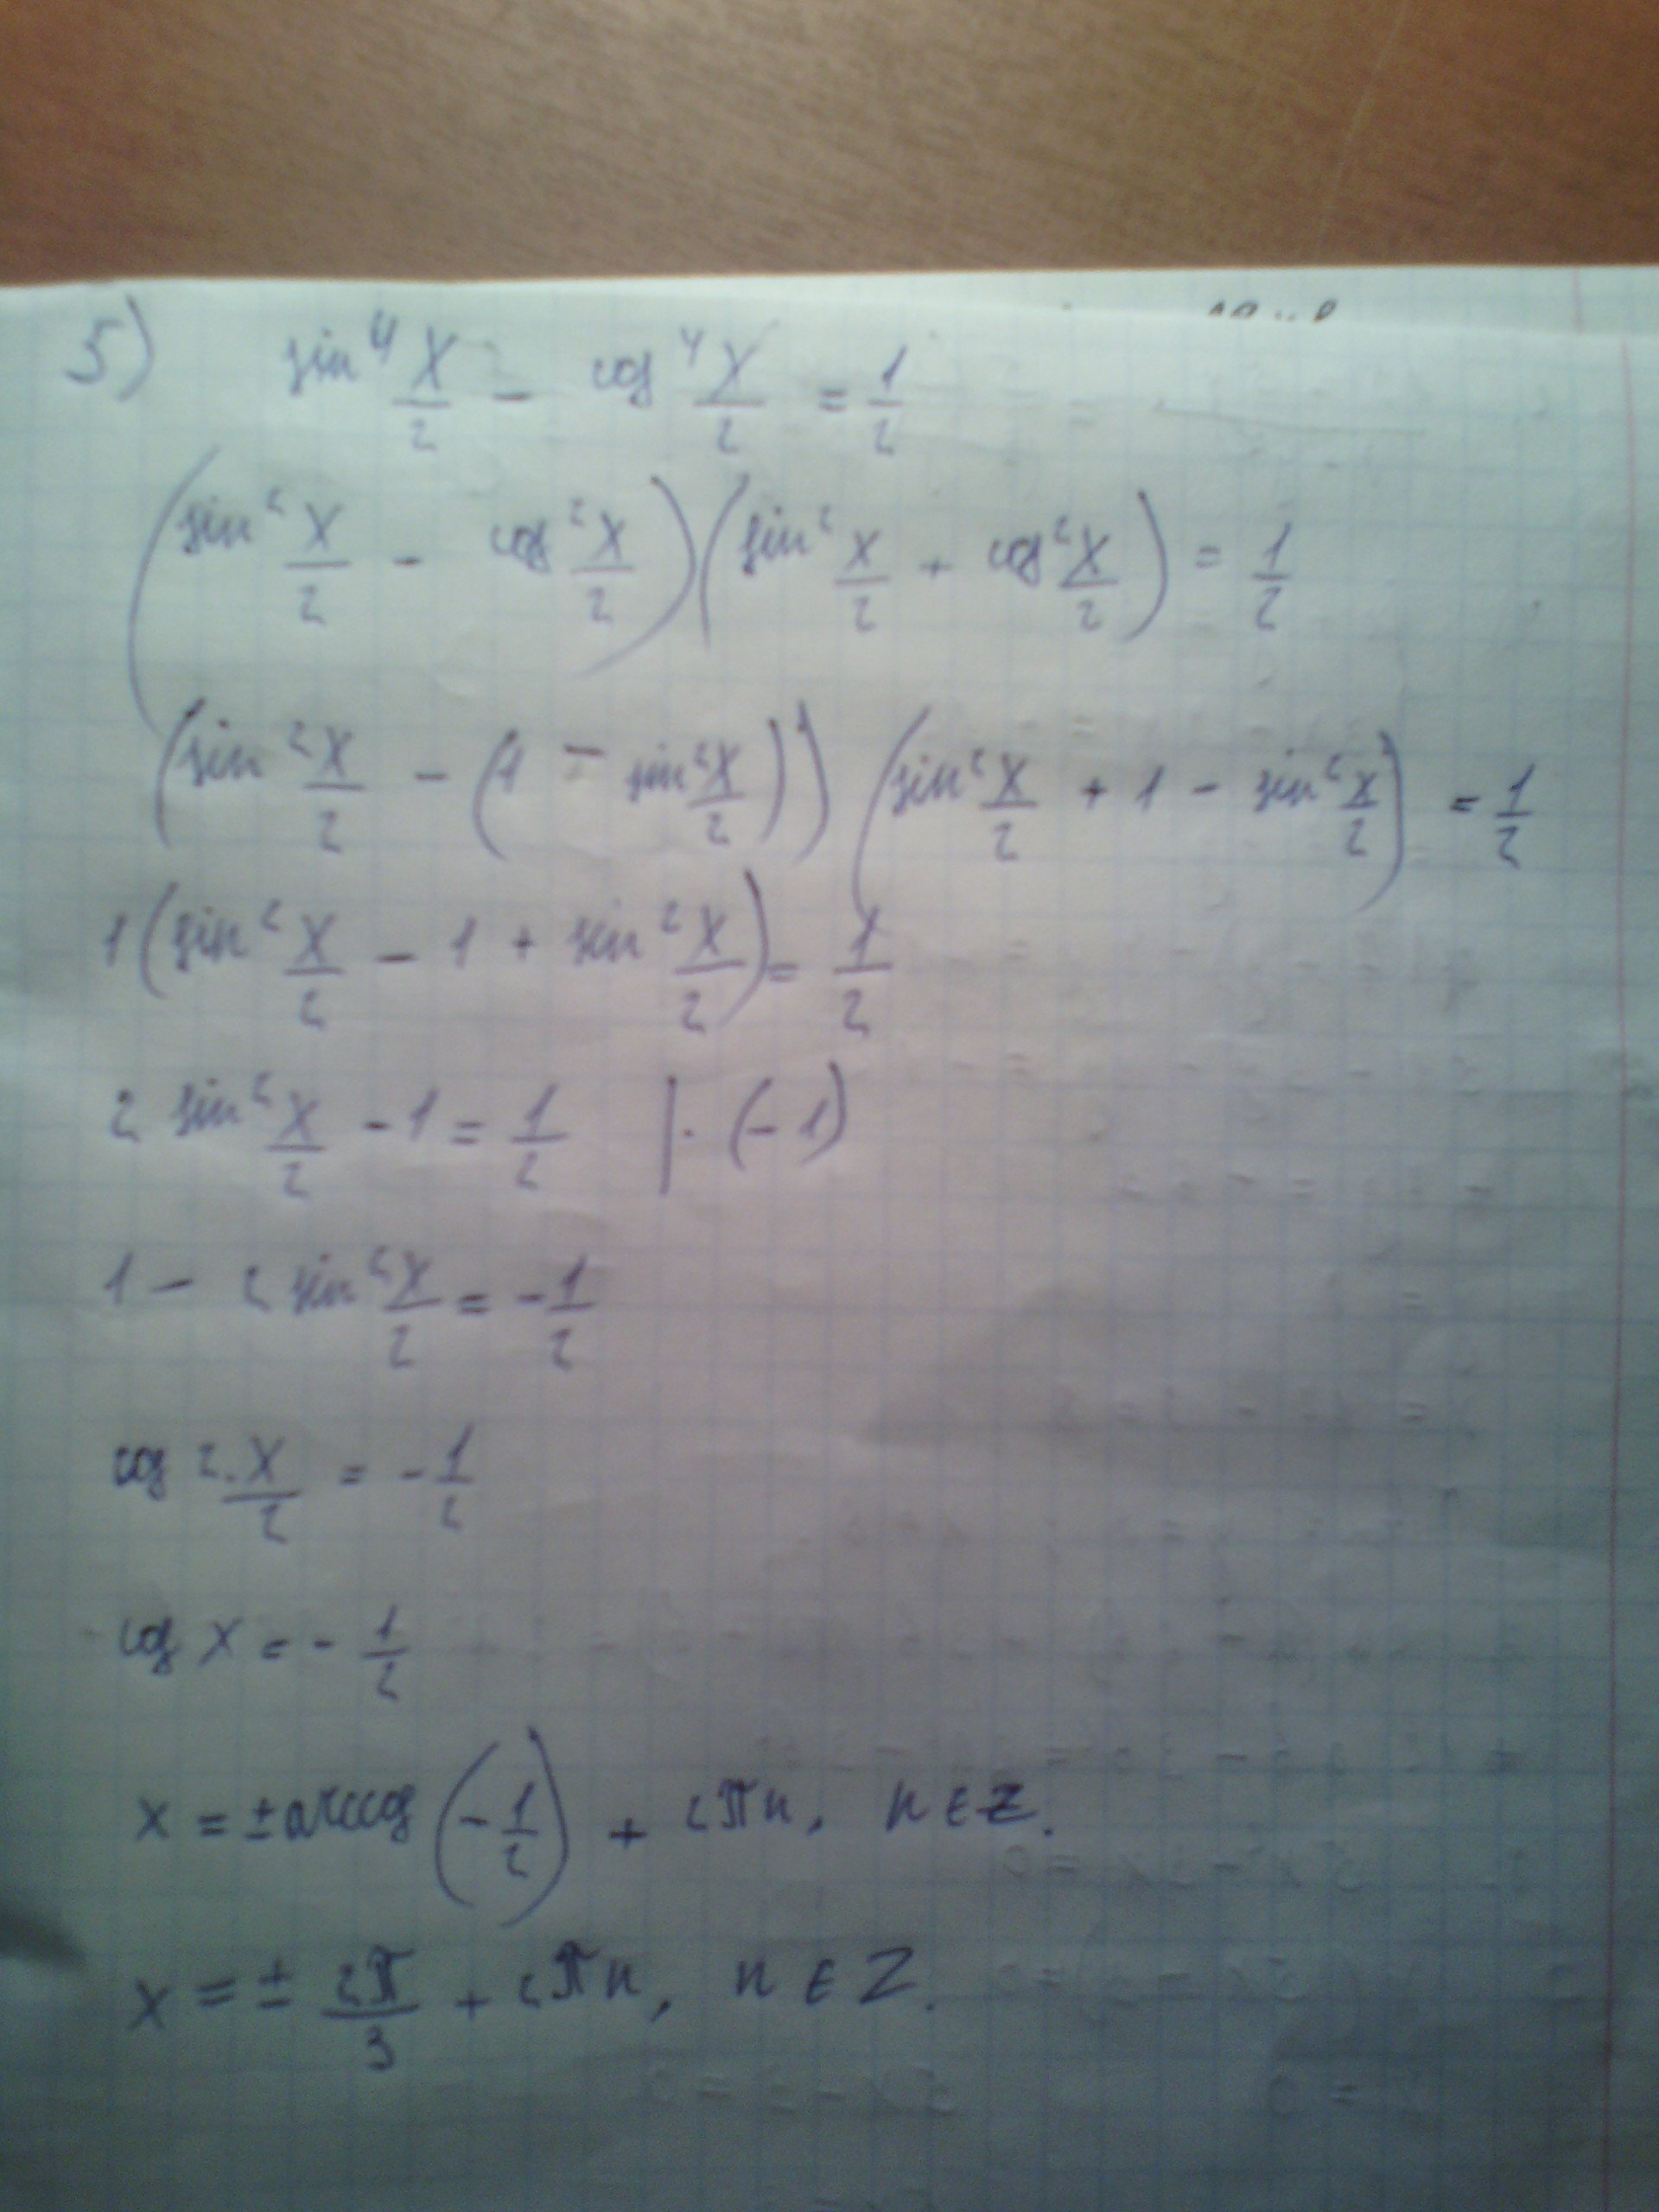 5) sin⁴ x/2 - cos⁴ x/2 = 1/2
(sin² x/2 - cos² x/2)(sin² x/2 + cos² x/2) = 1/2
(sin² x/2 - (1 - sin² x/2))(sin² x/2 + 1 - sin² x/2) = 1/2
1(sin² x/2 - 1 + sin² x/2) = 1/2
2 sin² x/2 - 1 = 1/2 | · (-1)
1 - 2 sin² x/2 = -1/2
cos 2·x/2 = -1/2
cos x = - 1/2
x = ± arccos(-1/2) + 2πn, n ∈ Z.
x = ± 2π/3 + 2πn, n ∈ Z.